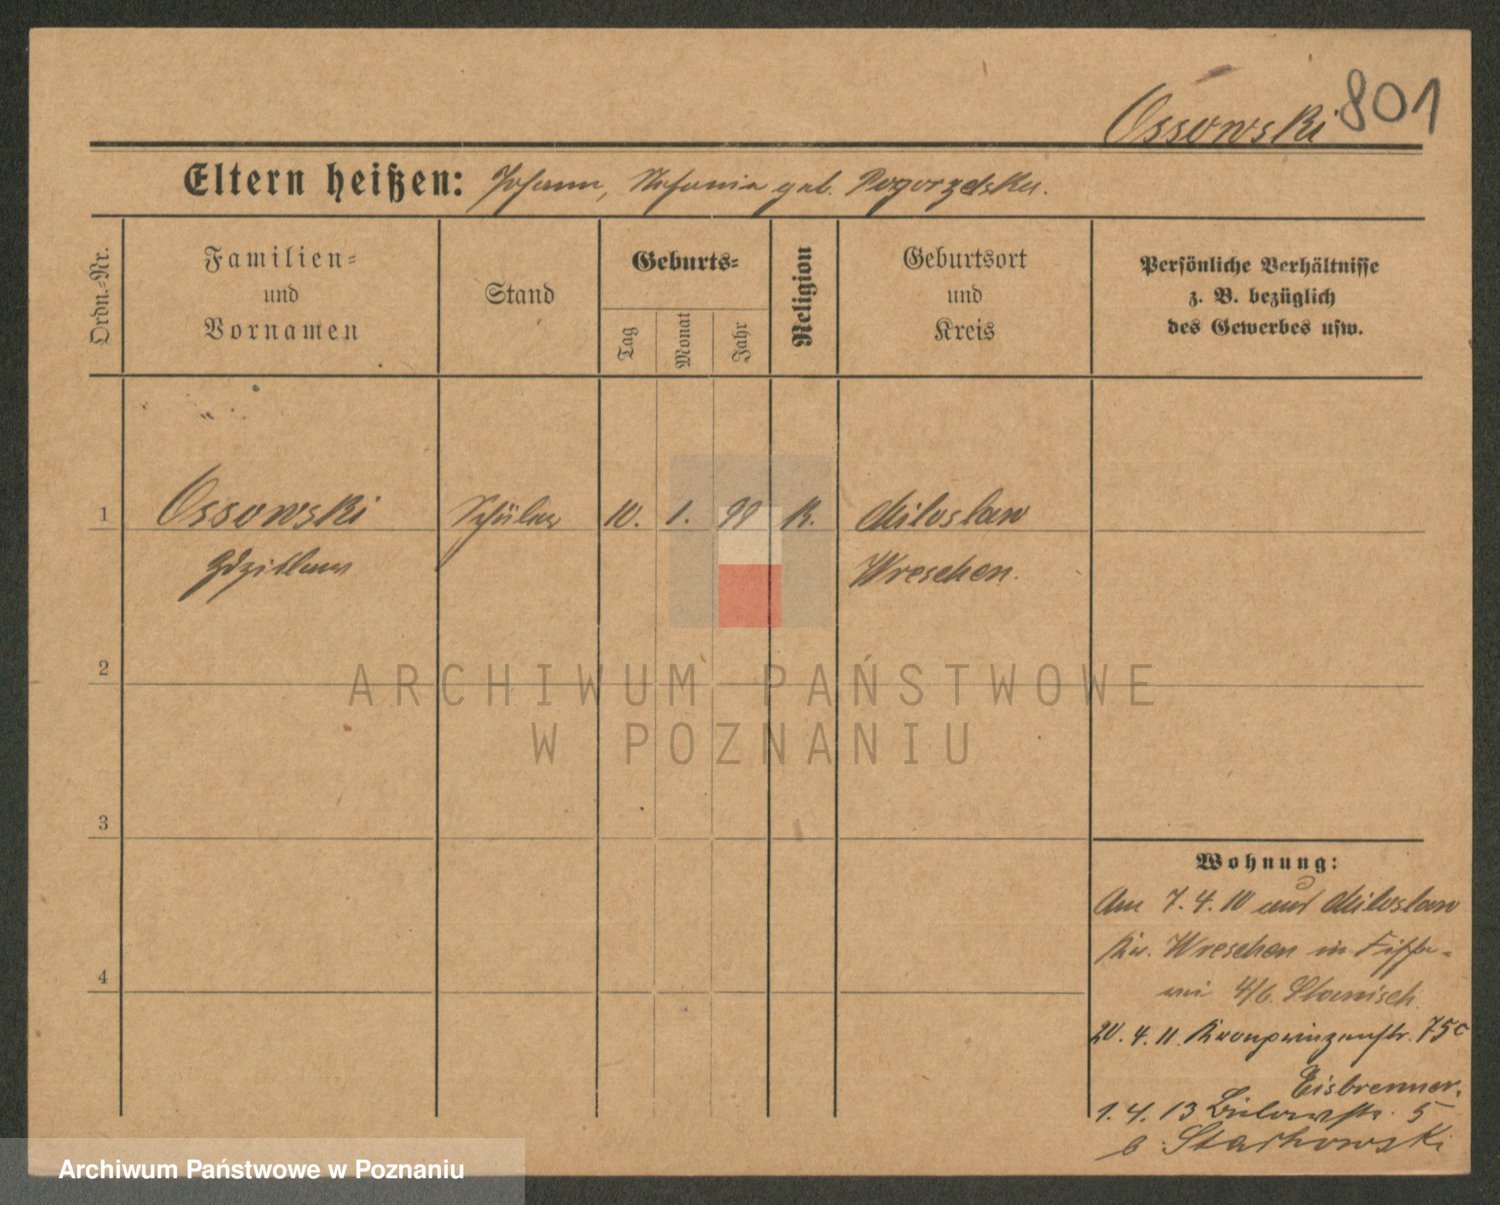 Ossowski 801
Eltern heißen: Johann, Stefania geb. Pogorzelska.
Ordn.-Nr.
Familien-
und
Vornamen
Stand
Geburts-
Tag
Monat
Jahr
Religion
Geburtsort
und
Kreis
Persönliche Verhältnisse
z. B. bezüglich
des Gewerbes usw.
1 Ossowski Schüler 10. 1. 99 K. Miloslaw
Wreschen.
2
3
4
Wohnung:
Am 7.4.10 aus Miloslaw
Kr. Wreschen in
4/6. Stanisch.
20.4.11. Kronprinzenstr. 75c
Eisbrenner.
1.4.13 Bülowstr. 5
b. Starkowski
ARCHIWUM PAŃSTWOWE
W POZNANIU
Archiwum Państwowe w Poznaniu